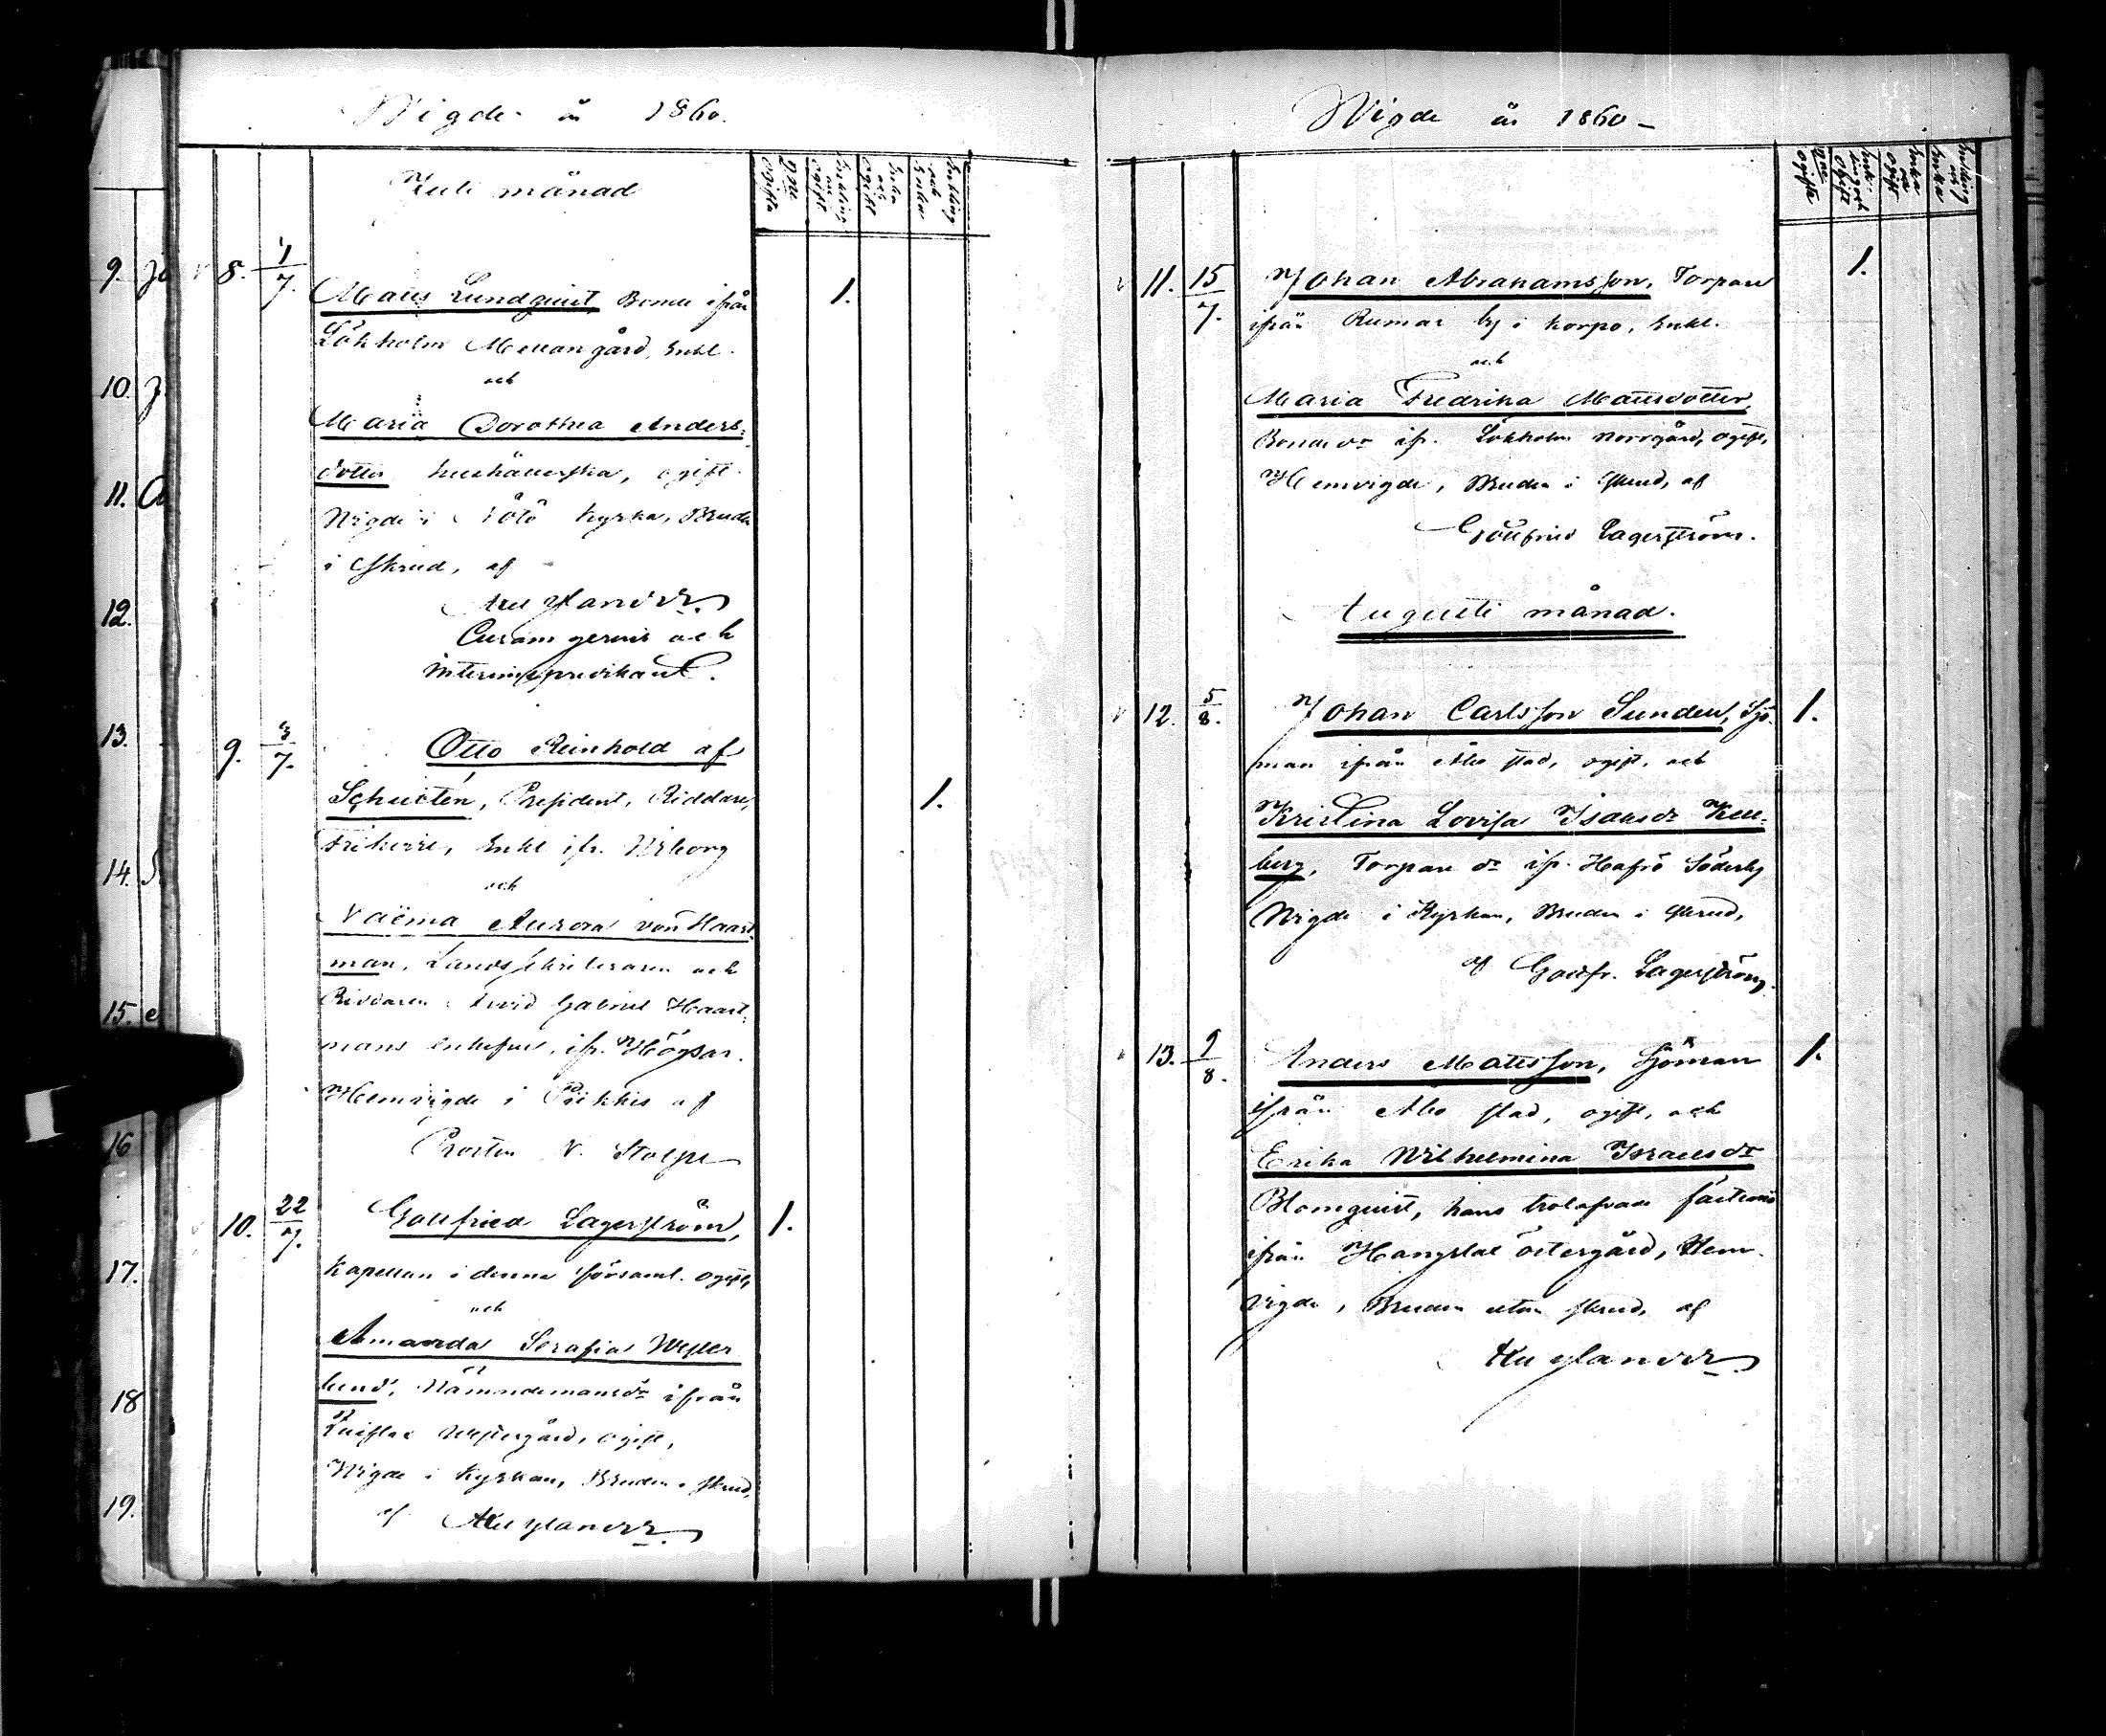 Wigde år 1860.
Juli månad
Ogifta
8. 1/7. Matts Lundquist, Bonde ifrån 1.
Lökholm Mellangård, Enkl.
och
Maria Dorothea Anders-
dotter hushållerska, ogift.
Wigde i Nötö Kyrka, Bruden
i skrud, af
Curam gerens och
interimspredikant.
9. 3/7. Otto Reinhold af
Schultén, President, Riddare, 1.
Friherre, Enkl ifr. Wiborg
och
Naëma Aurora von Haart-
man, Landssekreteraren och
Riddaren Arvid Gabriel Haart-
mans enkefru, ifr. Högsar.
Hemvigde i Piikkis af
Prosten Stolpe
10. 22/7. Gottfried Lagerström, 1.
Kapellan i denna församl. ogift,
och
Amanda Serafia Wester-
lund, Nämndemansdr ifrån
Westergård, ogift,
Wigde i Kyrkan, Bruden i skrud,
af
Wigde år 1860
Ogifta
11. 15/7. Johan Abrahamsson, Torpare 1.
ifrån Rumar by i Korpo, Enkl.
och
Maria Fredrika Mattsdotter,
Bonde dr ifr. Lökholm Norrgård, ogift,
Hemvigde, Bruden i skrud, af
Gottfried Lagerström.
Augusti månad.
12. 5/8. Johan Carlsson Sundell, Sjö- 1.
man ifrån Åbo stad, ogift, och
Kristina Lovisa Isaksdr Kell-
berg, Torpare dr ifr. Söderby
Wigde i Kyrkan, Bruden i skrud,
af Gottfr. Lagerström.
13. 9/8. Anders Mattsson, Sjöman 1.
ifrån Åbo stad, ogift, och
Erika Wilhelmina Israelsdr
Blomquist, hans trolofvade fästemö
ifrån Östergård, Hem-
vigde, Bruden utan skrud, af
9.
10.
11.
12.
13.
14.
15.
16
17.
18
19.